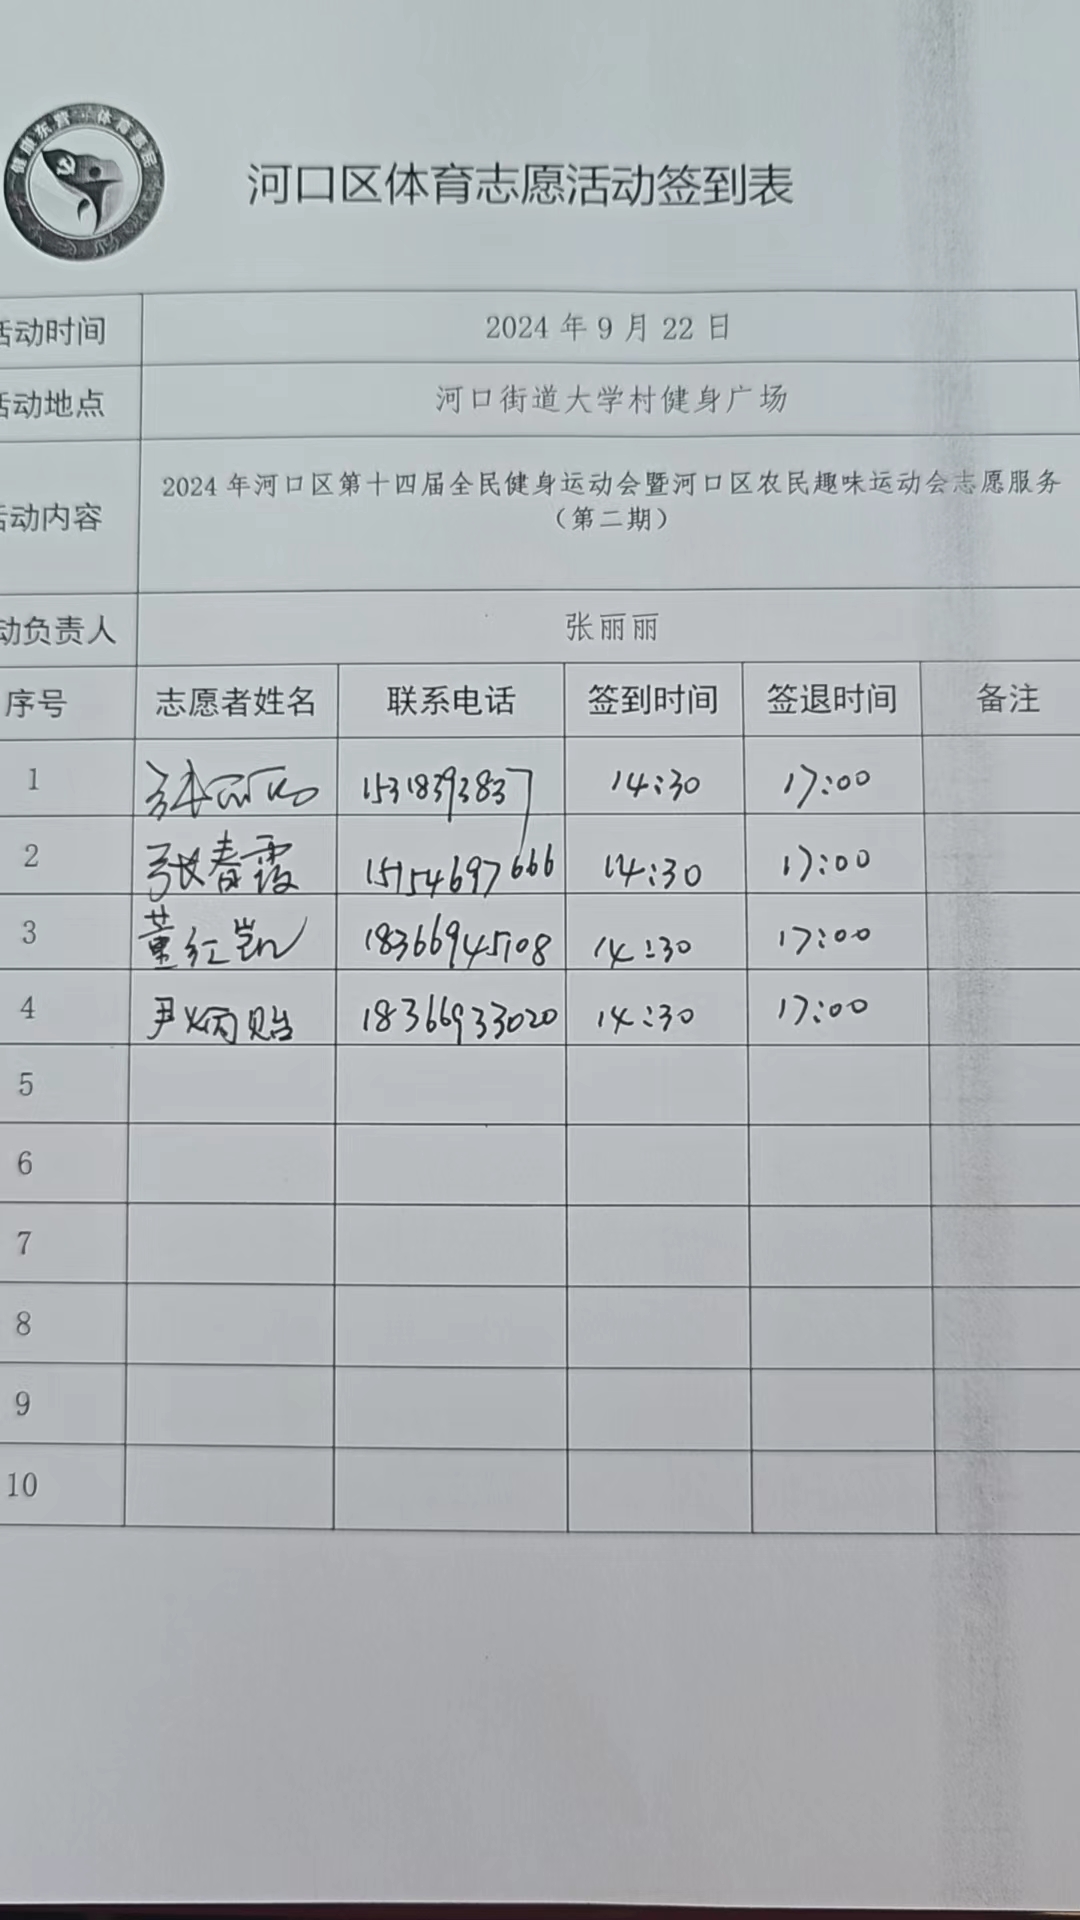 健康东营 体育惠民
河口区体育志愿活动签到表
活动时间 2024 年 9 月 22 日
活动地点 河口街道大学村健身广场
活动内容 2024 年河口区第十四届全民健身运动会暨河口区农民趣味运动会志愿服务
（第二期）
动负责人 张丽丽
序号 志愿者姓名 联系电话 签到时间 签退时间 备注
1 张丽丽 15318393837 14:30 17:00
2 张春霞 15154697666 14:30 17:00
3 董红凯 18366945108 14:30 17:00
4 尹炳贻 18366933020 14:30 17:00
5
6
7
8
9
10